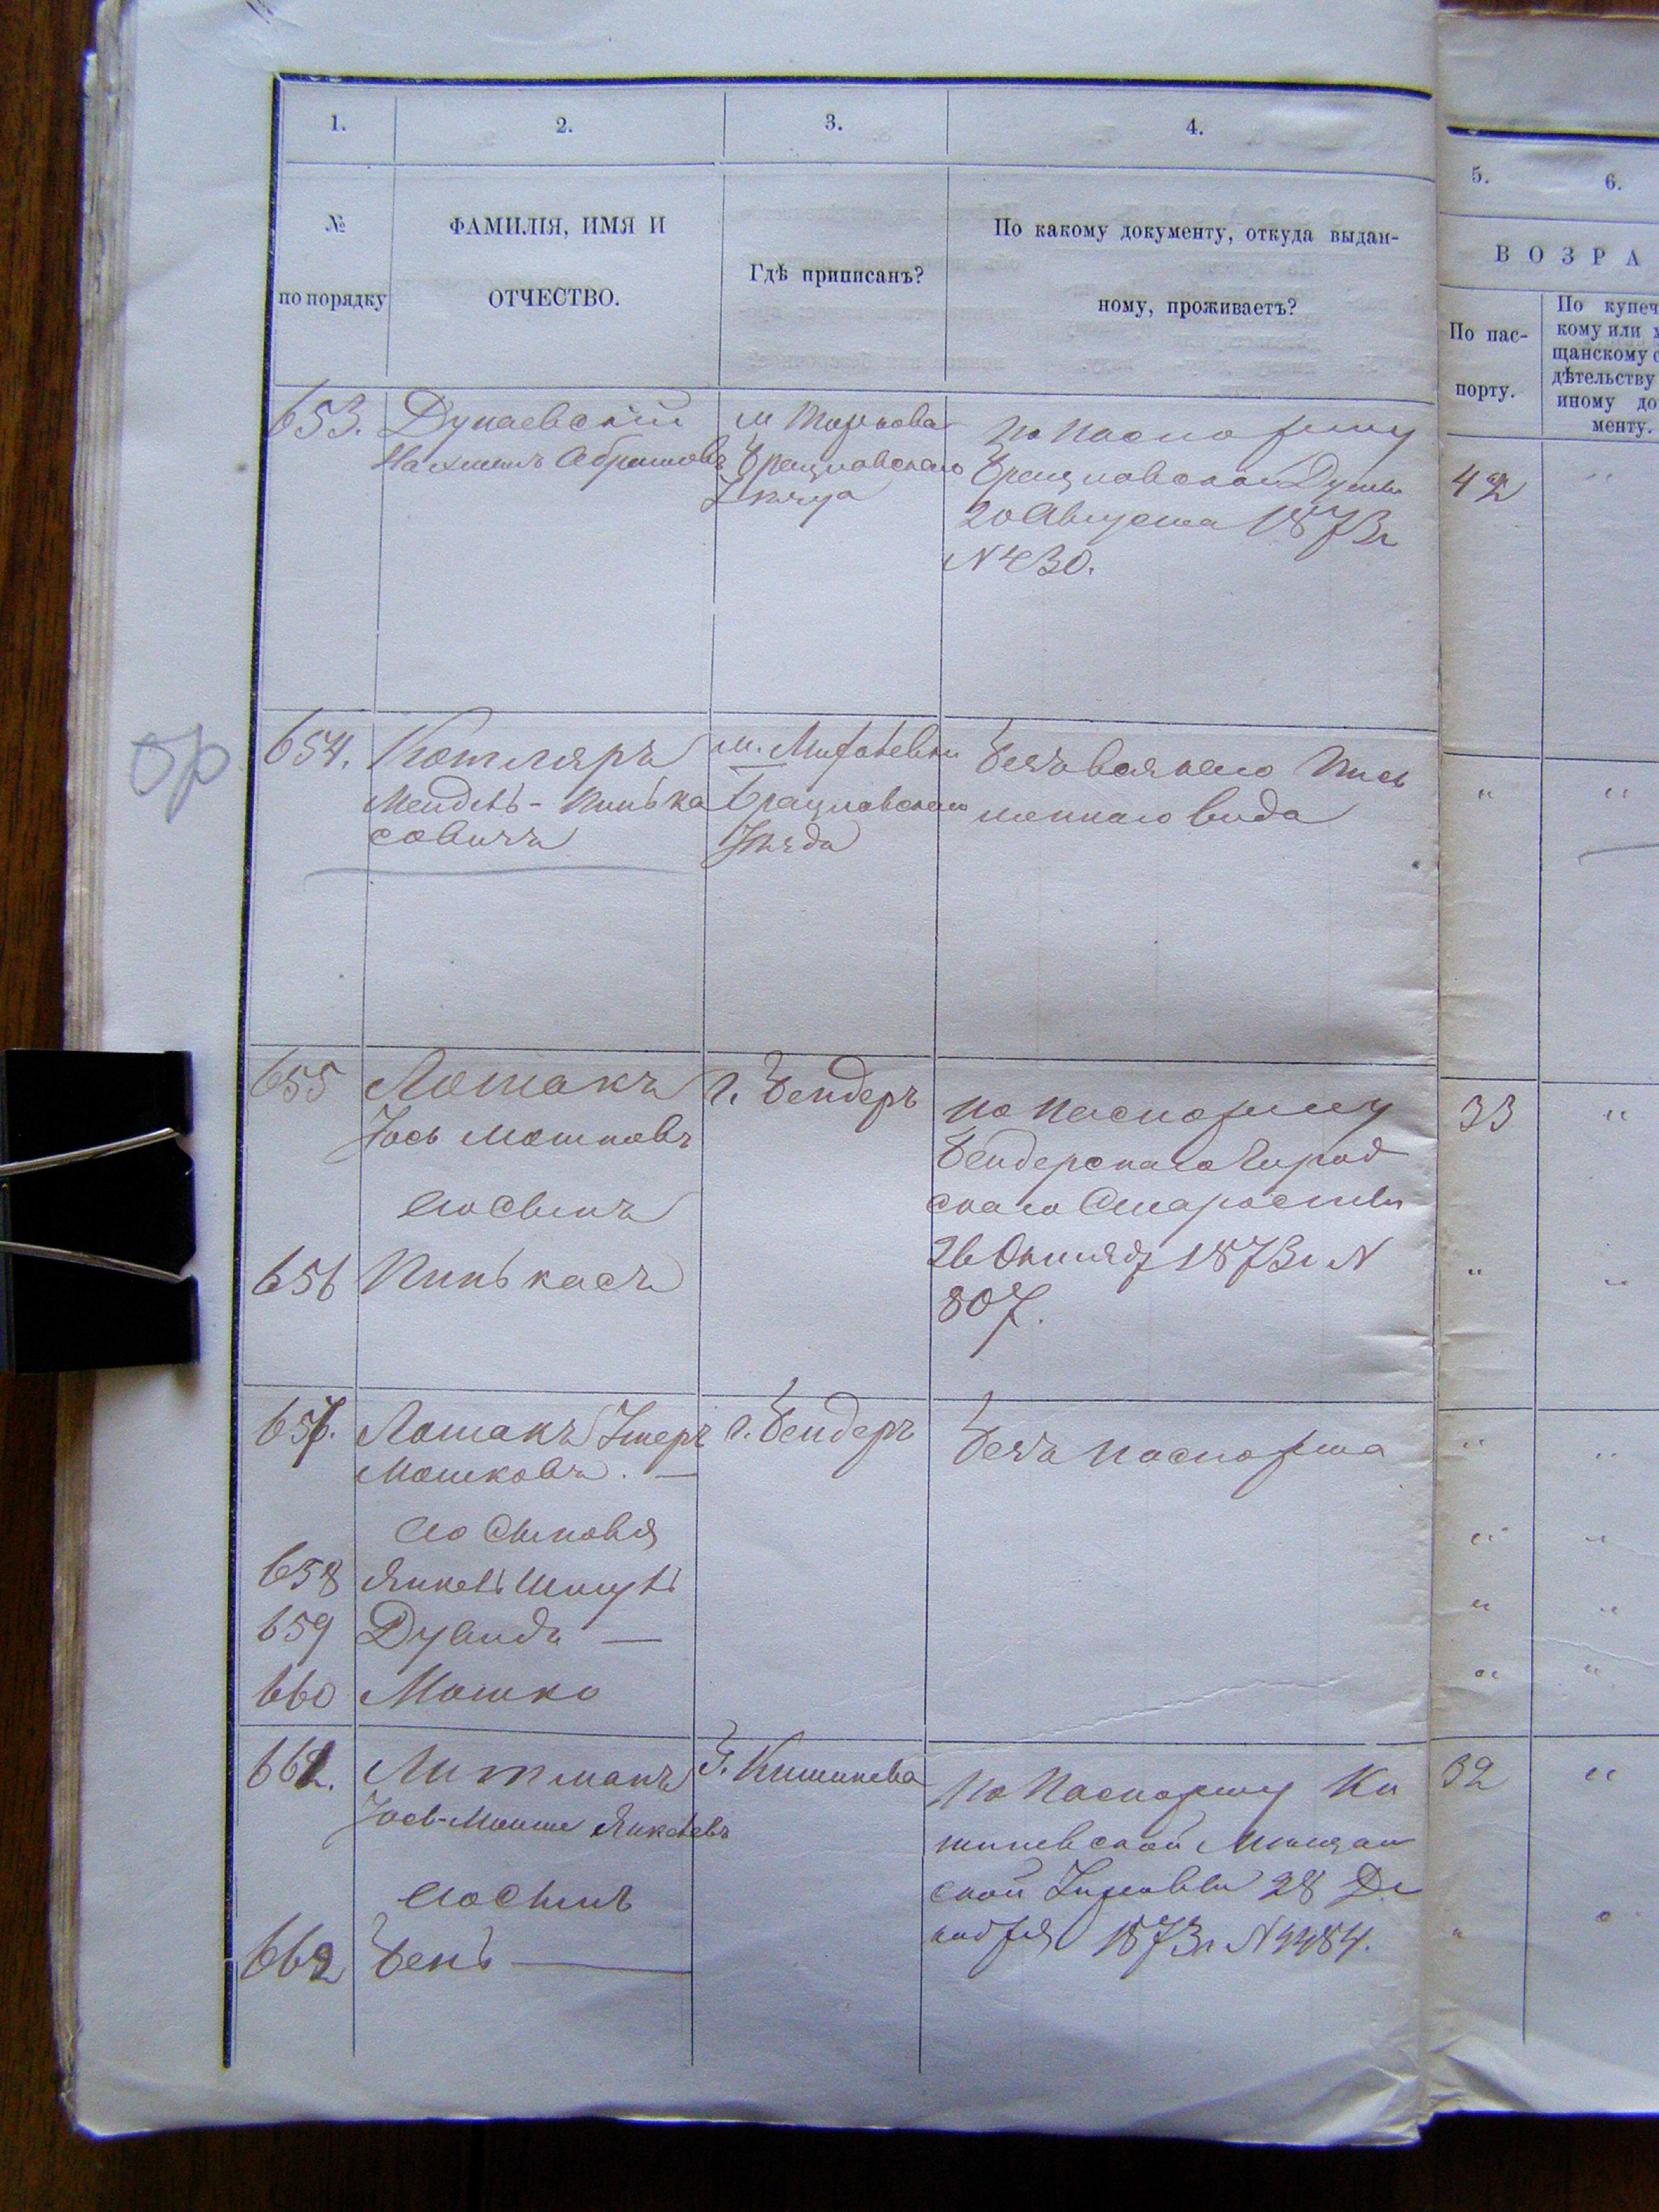 1.
2.
3.
4.
5.
6.
№
по порядку
ФАМИЛІЯ, ИМЯ И
ОТЧЕСТВО.
Гдѣ приписанъ?
По какому документу, откуда выдан-
ному, проживаетъ?
ВОЗРА
По пас-
порту.
По купеч
кому или
щанскому с
дѣтельству
иному до
менту.
653.
Дунаевскій
Абрамовъ
м
Брацлавскаго
По паспорту
Брацлавской Думы
20 Августа 1873 г
N 430.
42
ор
654.
Котляръ
Мендель-Пинька
совичъ
м.
Брацлавскаго
Уѣзда
Безъ всякаго Пись
меннаго вида
655
Лошакъ
Іось Мошковъ
г. Бендеръ
По паспорту
Бендерскаго Город
скаго Старосты
26 Октяб 1873 г N
807.
33
его сынъ
656
Пинькасъ
657.
Лошакъ
Мошковъ. —
г. Бендеръ
Безъ паспорта
его сыновья
658
Янкель Шмуль
659
Дувидъ —
660
Мошко
661.
Литманъ
Іось-Мошко Янкелевъ
Г. Кишинева
По паспорту Ки
шиневской Мѣщан
ской Управы 28 Де
кабря 1873 г N 4484.
32
его сынъ
662
Бень —